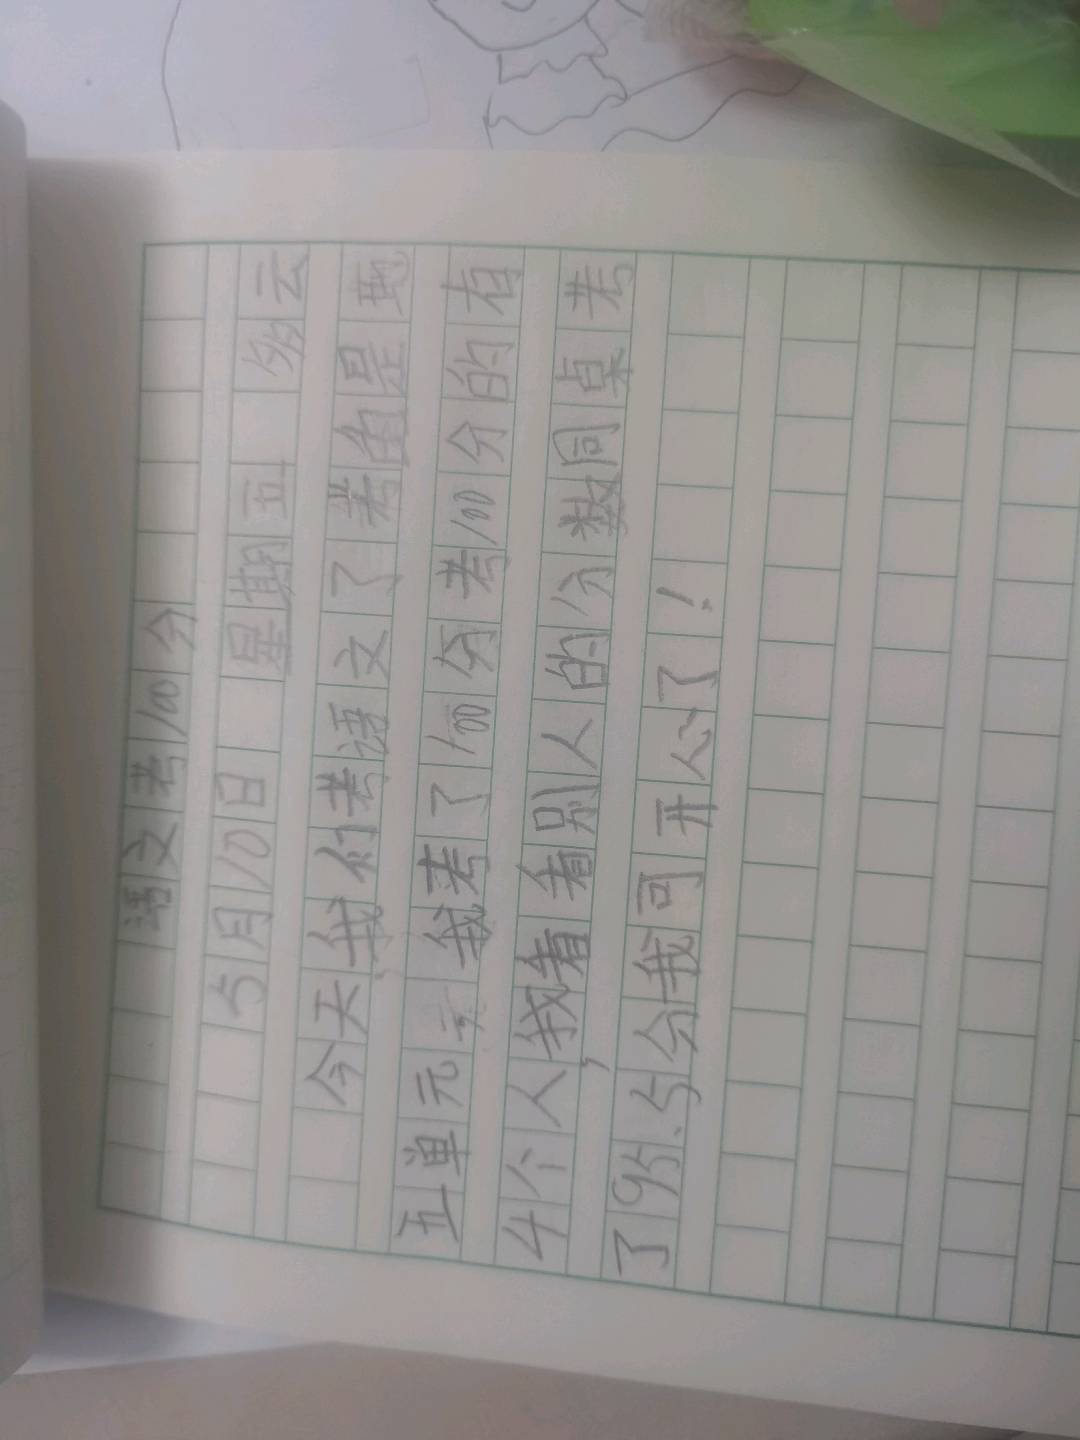 语文考100分
5月10日 星期五 多云
今天，我们考语文了考的是
五单元 我考了100分考100分的有
4个人，我看看别人的分数同桌考
了95.5分我可开心了！